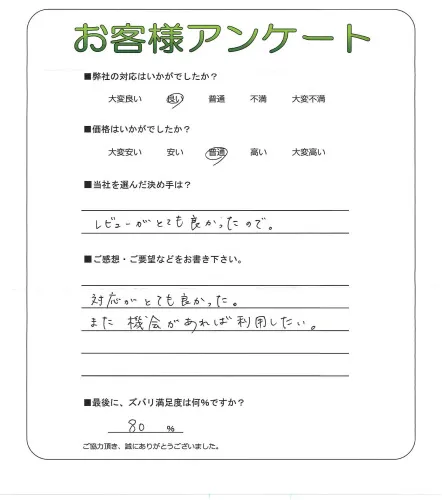 お客様アンケート
■弊社の対応はいかがでしたか？
大変良い 良い 普通 不満 大変不満
■価格はいかがでしたか？
大変安い 安い 普通 高い 大変高い
■当社を選んだ決め手は？
レビューがとても良かったので。
■ご感想・ご要望などをお書き下さい。
対応がとても良かった。
また機会があれば利用したい。
■最後に、ズバリ満足度は何％ですか？
80 %
ご協力頂き、誠にありがとうございました。